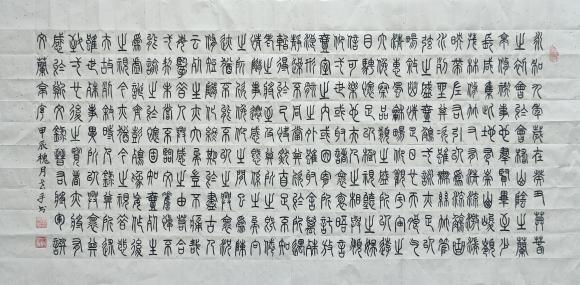 永和九年歲在癸丑暮春
之初會于會稽山陰之蘭
亭修禊事也群賢畢至少
長咸集此地有崇山峻嶺
茂林修竹又有清流激湍
映帶左右引以為流觴曲
水列坐其次雖無絲竹管
弦之盛一觴一詠亦足以
暢敘幽情是日也天朗氣
清惠風和暢仰觀宇宙之
大俯察品類之盛所以游
目騁懷足以極視聽之娛
信可樂也夫人之相與俯
仰一世或取諸懷抱悟言
一室之內或因寄所託放
浪形骸之外雖趣舍萬殊
靜躁不同當其欣於所遇
暫得於己快然自足不知
老之將至及其所之既倦
情隨事遷感慨係之矣向
之所欣俛仰之間已為陳
跡猶不能不以之興懷況
脩短隨化終期於盡古人
云死生亦大矣豈不痛哉
每覽昔人興感之由若合
一契未嘗不臨文嗟悼不
能喻之於懷固知一死生
為虛誕齊彭殤為妄作後
之視今亦由今之視昔悲
夫故列敘時人錄其所述
雖世殊事異所以興懷其
致一也後之覽者亦將有
感於斯文
文蘭亭序甲辰槐月